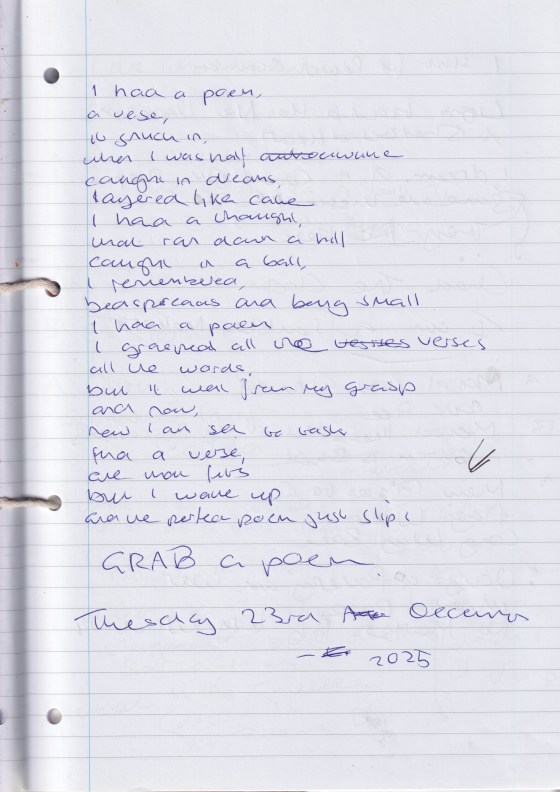 I had a poem,
a verse,
it stuck in,
when I was half awake
caught in dreams,
layered like cake
I had a thought,
that ran down a hill
caught in a ball,
I remembered,
bedspreads and being small
I had a poem
I grasped all the verses
all the words,
but it went from my grasp
and now,
now I am set to task
find a verse,
one that fits
but I wake up
and the perfect poem just slips
GRAB a poem.
Tuesday 23rd December
2025